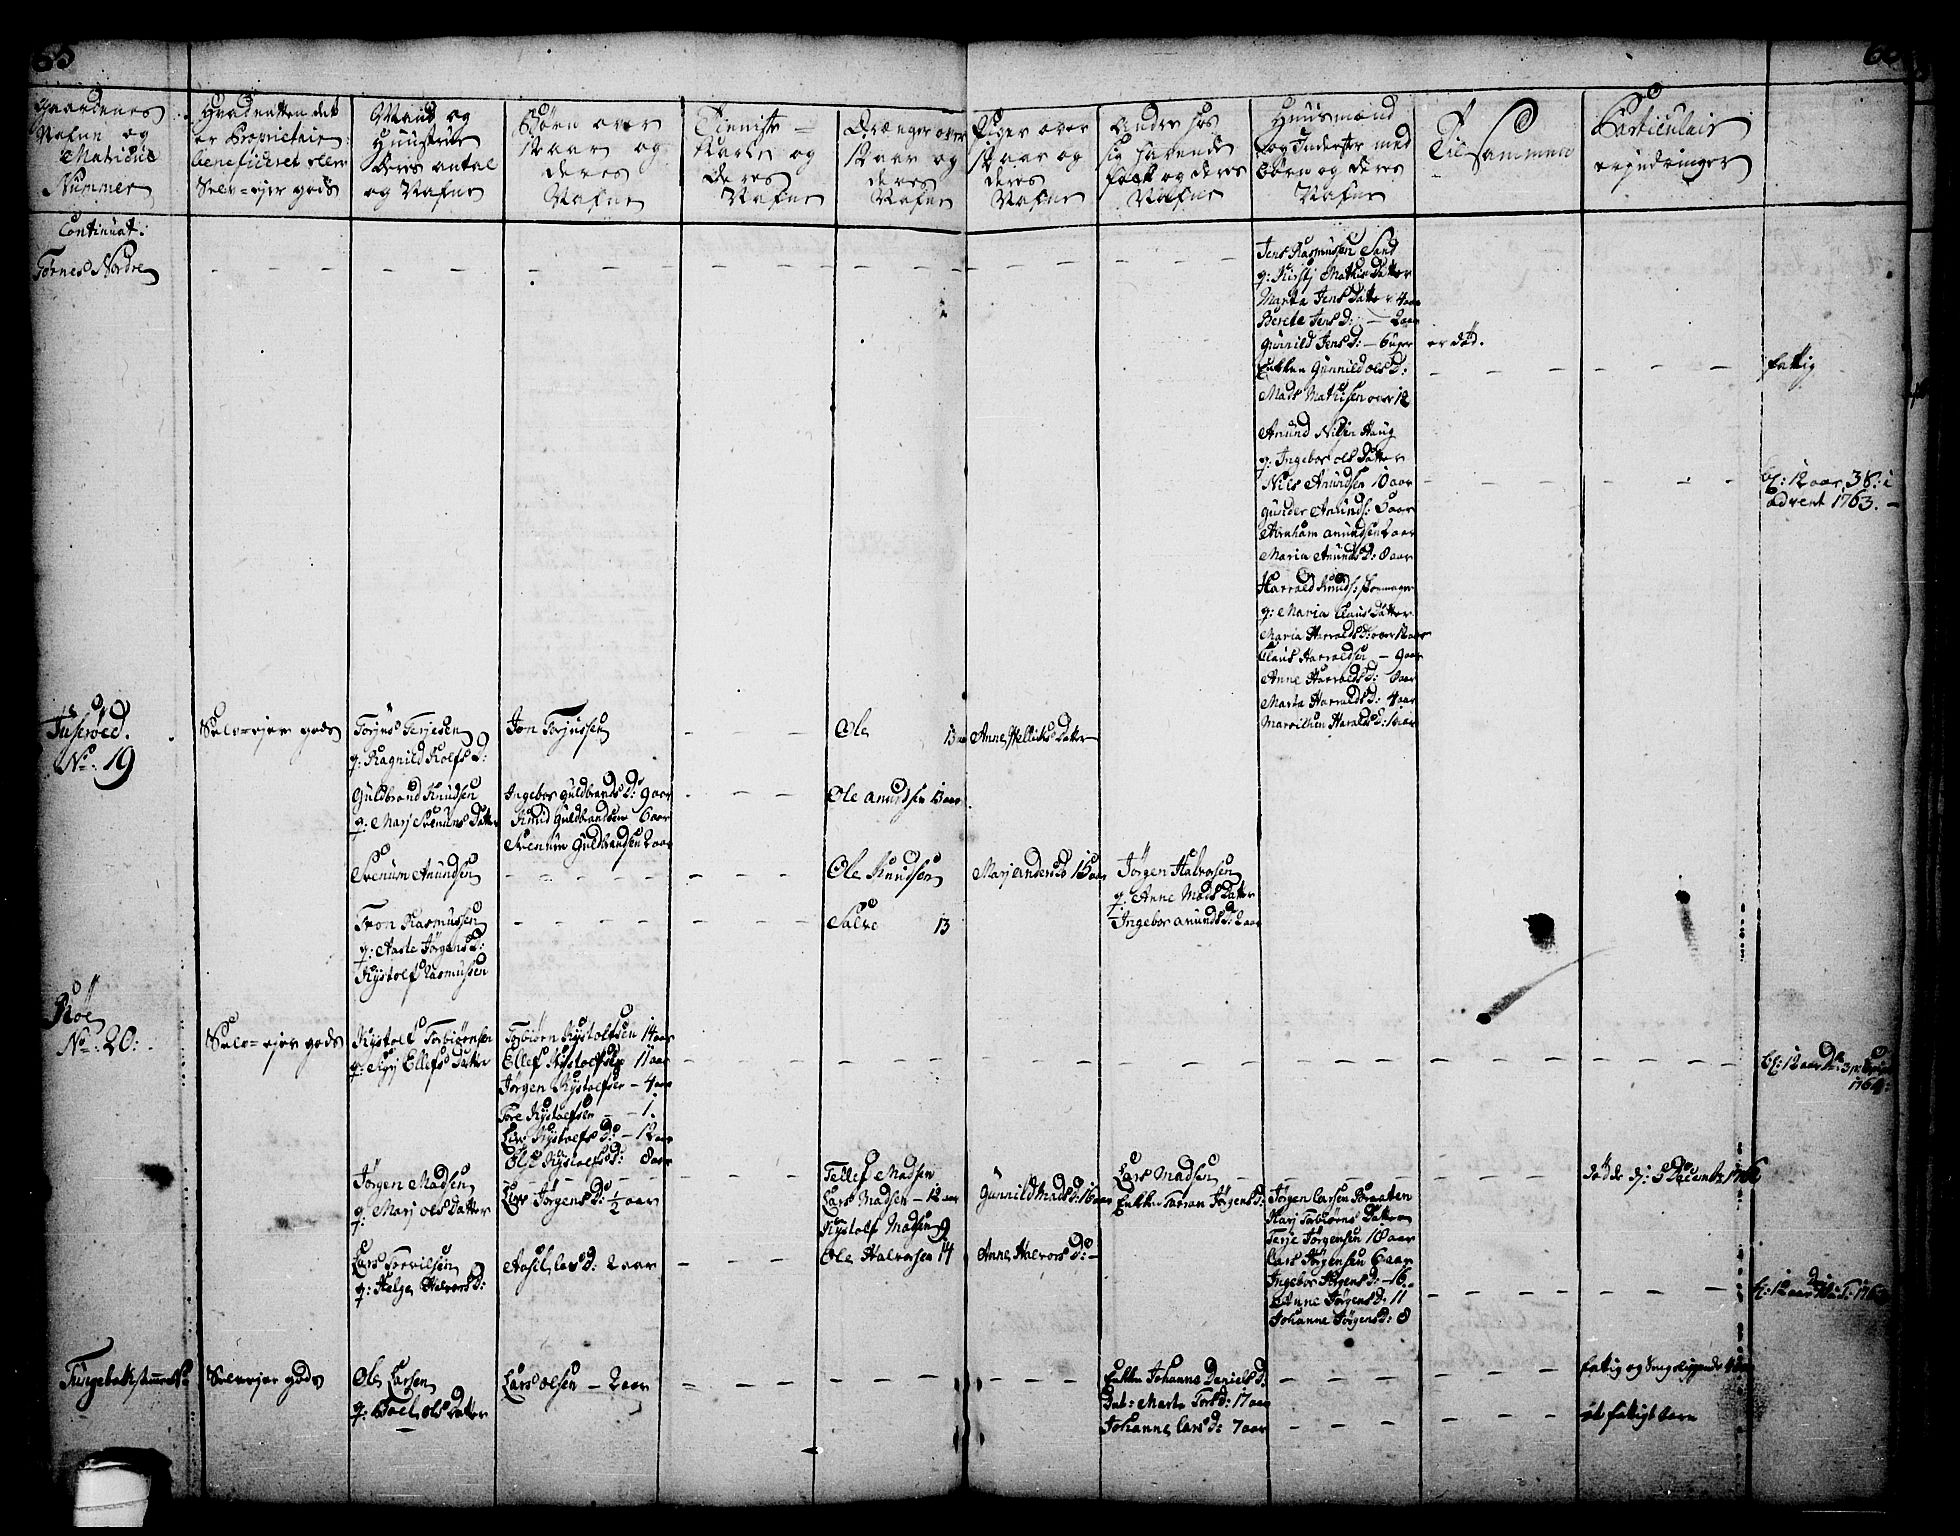 65
Gaardenes
Nafne og
Matricul
Nummer
Hvad enten det
er Proprietair
beneficeret eller
Selv-ejer gods
Mand og
Huustrue
Deres antal
og Nafne
Børn over
12 aar og
deres
Nafne
Tieniste-
Karle og
Deres
Nafne
Drænger over
12 aar og
deres
Nafne
Piger over
12 aar og
deres
Nafne
Andre hos
sig havende
folk og deres
Nafne
Huusmænd
og Inderster med
børn og deres
Nafne
Tilsammen
Particulair
erindringer
Continuat:
Tornes Nordre
Jens Rasmussen Sand
q: Kirstj Mathis Datter
Marta Jens Datter 4 aar
Berete Jens D: - 2 aar
Gunnild Jens D: - 6 uger er død.
Enken Gunnild ols D: fattig
Mads Mathisen over 12
Anund Nilsen Haug
q: Ingebor ols Datter
Nils Anundsen 10 aar
Gunder Anunds: 6 aar
Abraham Anundsen 2 aar
Maria Anunds D: 8 aar
bl: 12 aar 3 S: i
advent 1763.
Harrald Knuds: skomager
q: Maria Claus Datter
Maria Harralds D: over 12 aar
Claus Harraldsen - 9 aar
Anne Harralds D: 8 aar
Marta Harralds D: 4 aar
Marvilken Haralds D: 1 aar
Tuserøed.
No. 19
Selv-ejer gods
Torjus Terjesen
q: Ragnild Rolfs D:
Jon Torjussen
Ole 13 aar
Anne Hellicks Datter
Guldbrand Knudsen
q: Marj Svenums Datter
Ingebor Guldbrands D: 9 aar
Knud Guldbrandsen 6 aar
Svenum Guldbrandsen 2 aar
Ole Anundsen 13 aar
Svenum Anundsen
Ole Knudsen
Marj anders D 15 aar
Jørgen Halvorsen
q: Anne Mads Datter
Ingebor Anunds D: 2 aar
Tron Rasmussen
q: Aaste Jørgens D:
Kystolf Rasmussen
Salve 13
Røe
No. 20:
Selv-ejer gods
Kystolf Torbiørnsen
q: Sigj Ellefs Datter
Torbiørn Kystolfsen 14 aar
Ellef Kystolfsen 11 aar
Jørgen Kystolfsen - 4 aar
Tore Kystolfsen - - 1.
Liv Kystolfs D: - 12 aar
Else Kystolfs D: 8 aar
Jørgen Madsen
q: Marj ols Datter
Liv Jørgens D: ½ aar
Tellef Madsen
Lars Madsen - 12 aar
Kystolf Madsen 9
Gunnild Mads D: 16 aar
Lars Madsen
Enken Taaran Jørgens D:
døde d: 5 Decembr 1762
Jørgen Larsen Braaten
Karj Torbiørns Datter
Terje Jørgensen 18 aar
Lars Jørgensen 6 aar
Ingebor Jørgens D: - 16.
Anne Jørgens D: 11
Johanne Jørgens D: 8
Lars Torvilsen
q: Helge Halvors D:
Aasil Lars D: 2 aar
Ole Halvorsen 14
Anne Halvors D: -
Selvejer gods
Ole Larsen
q: Boel ols Datter
Lars olsen - 2 aar
Enken Johanne Daniels D:
Dat: Marte Tors D: 17 aar
Johanne Lars D: 7 aar
fattig og
et fattigt barn